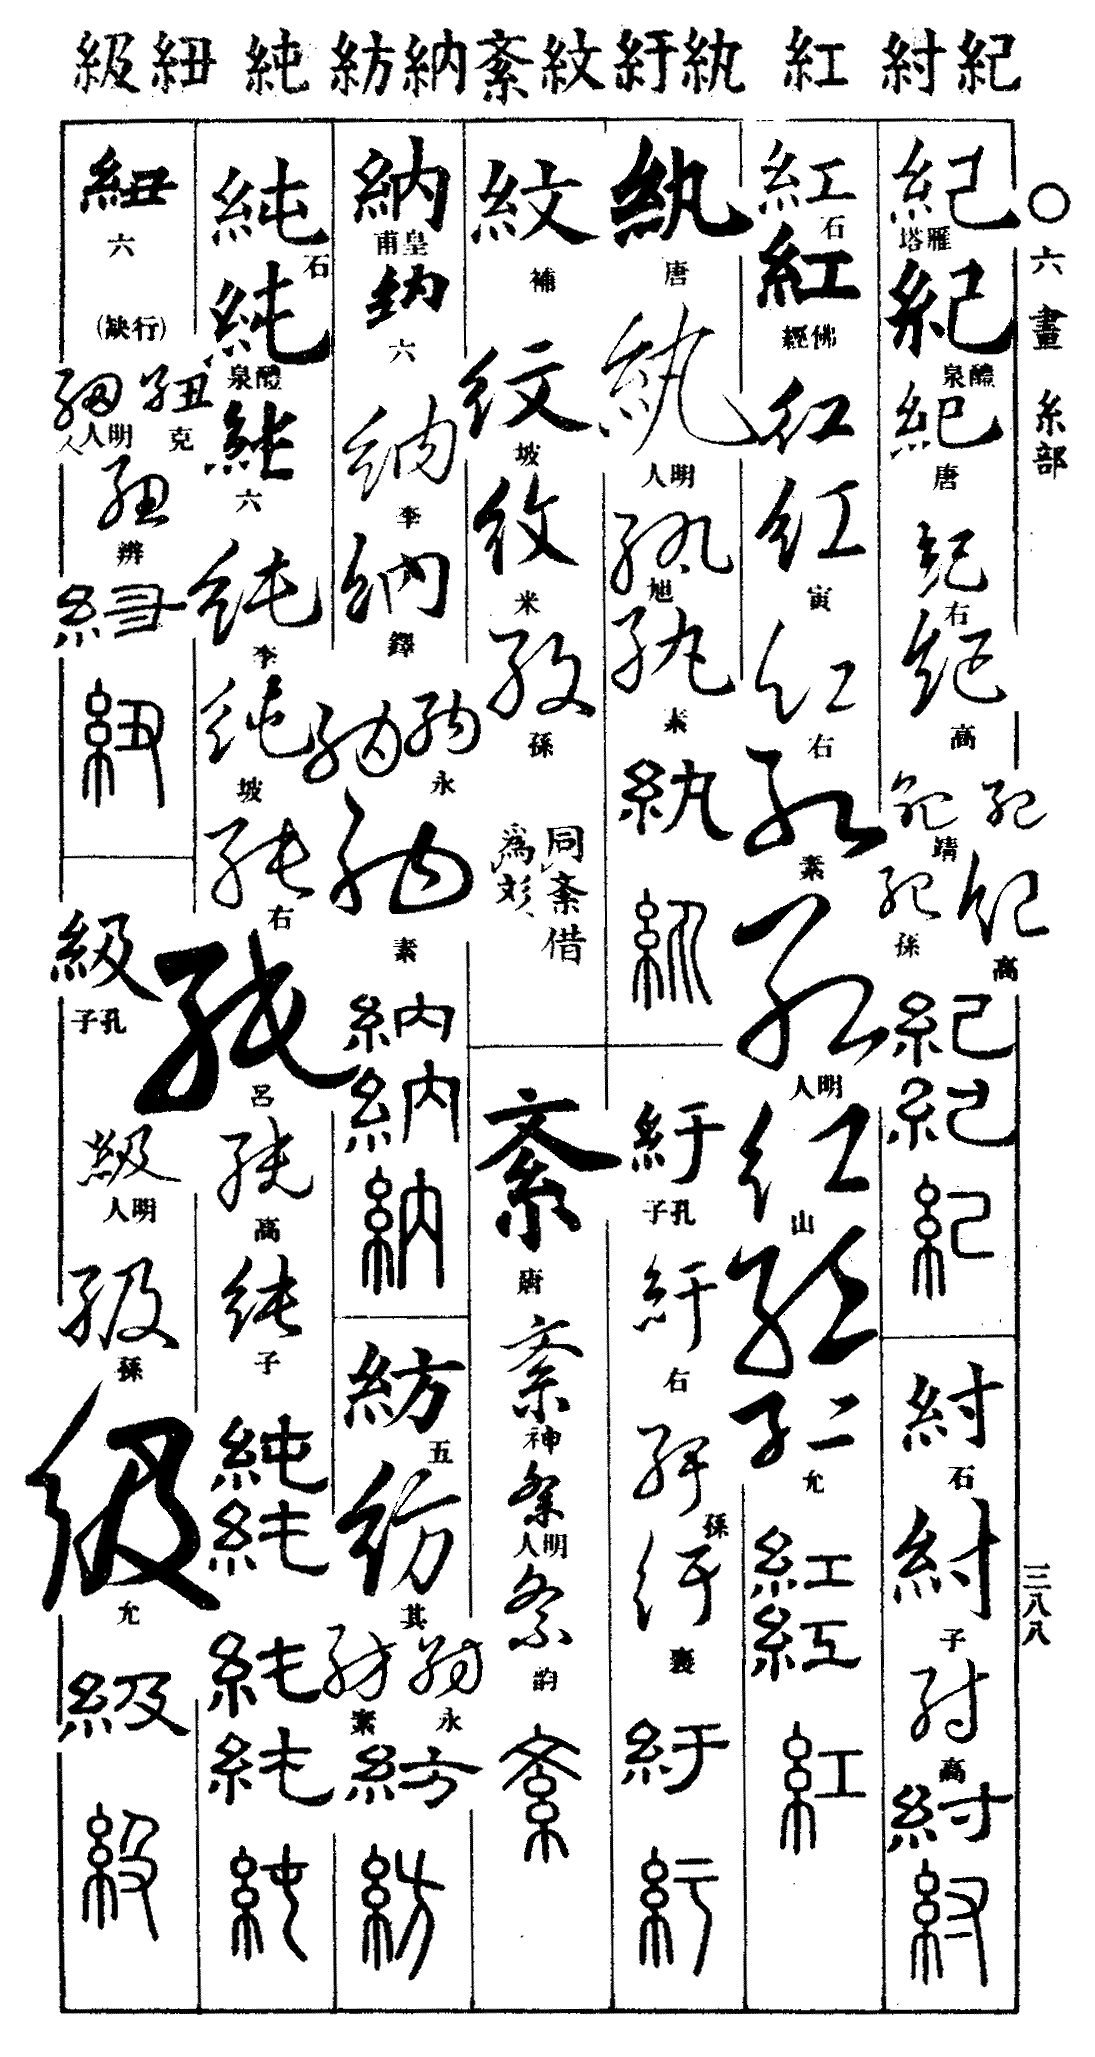 紀 紂 紅 紈 紆 紋 紊 納 紡 純 紐 級
〇六畫 糸部
三八八
紀 雁塔
紀 醴泉
紀 唐
紀 右
紀 高
紀 紀 靖
紀 孫
紀 高
紀
紀
紀
紂 石
紂 子
紂 高
紂
紂
紅 石
紅 佛經
紅
紅 寅
紅 右
紅 素
紅 明人
紅 山
紅
紅 允
紅
紅
紅
紈 唐
紈 明人
紈 旭
紈 素
紈
紈
紆 孔子
紆 右
紆 孫
紆 襄
紆
紆
紋 補
紋 坡
紋 米
紋 孫
同紊借
為彣、
紊 唐
紊 神
紊 明人
紊 韵
紊
納 皇甫
納 六
納 李
納 鐸
納 納 永
納 素
納
納
納
紡 五
紡 其
紡 永
紡 素
紡
紡
純 石
純 醴泉
純 六
純 李
純 坡
純 右
純 呂
純 高
純 子
純
純
純
純
純
紐 六
(行缺)
紐 克
紐 明人
紐 辨
紐
紐
級 孔子
級 明人
級 孫
級 允
級
級